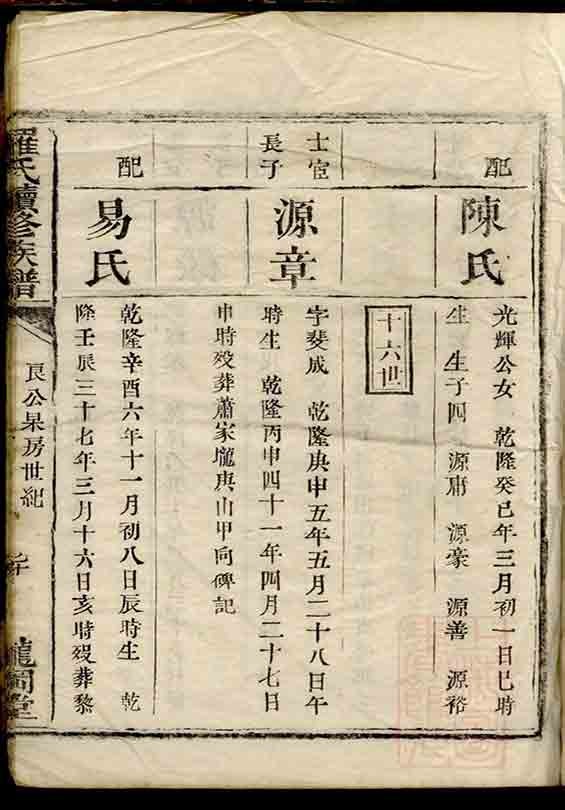 配
陳氏
光輝公女 乾隆癸巳年三月初一日巳時
生 生子四 源庸 源豪 源善 源裕
十六世
士宦
長子
源章
字斐成 乾隆庚申五年五月二十八日午
時生 乾隆丙申四十一年四月二十七日
申時歿葬蕭家壠庚山甲向碑記
配
易氏
乾隆辛酉六年十一月初八日辰時生 乾
隆壬辰三十七年三月十六日亥時歿葬黎
羅氏續修族譜
良公杲房世紀